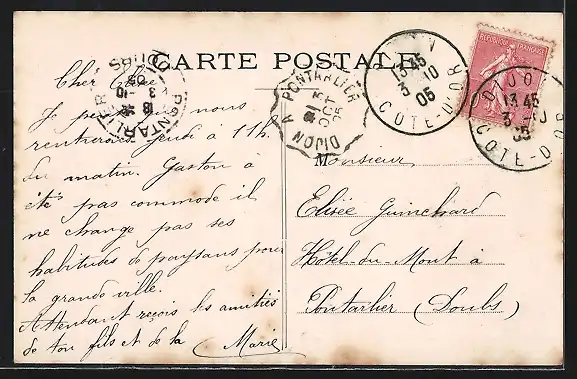 CARTE POSTALE
DOUBS
18 10
3 -10
05
PONTARLIER
A PONTARLIER
3
OCT
05
DIJON
13 45
3 -10
05
COTE-D'OR
REPUBLIQUE FRANÇAISE
DIJON
13 45
3 -10
05
COTE-D'OR
Cher Elisée
Je pense nous
rentrerons jeudi à 11h.
du matin. Gaston a
été pas commode il
ne change pas ses
habitudes de paysans pour
la grande ville.
Attendant reçois les amitiés
de ton fils et de la Marie
Monsieur
Elisée Guinchard
Hôtel-du-Mont à
Pontarlier (Doubs)